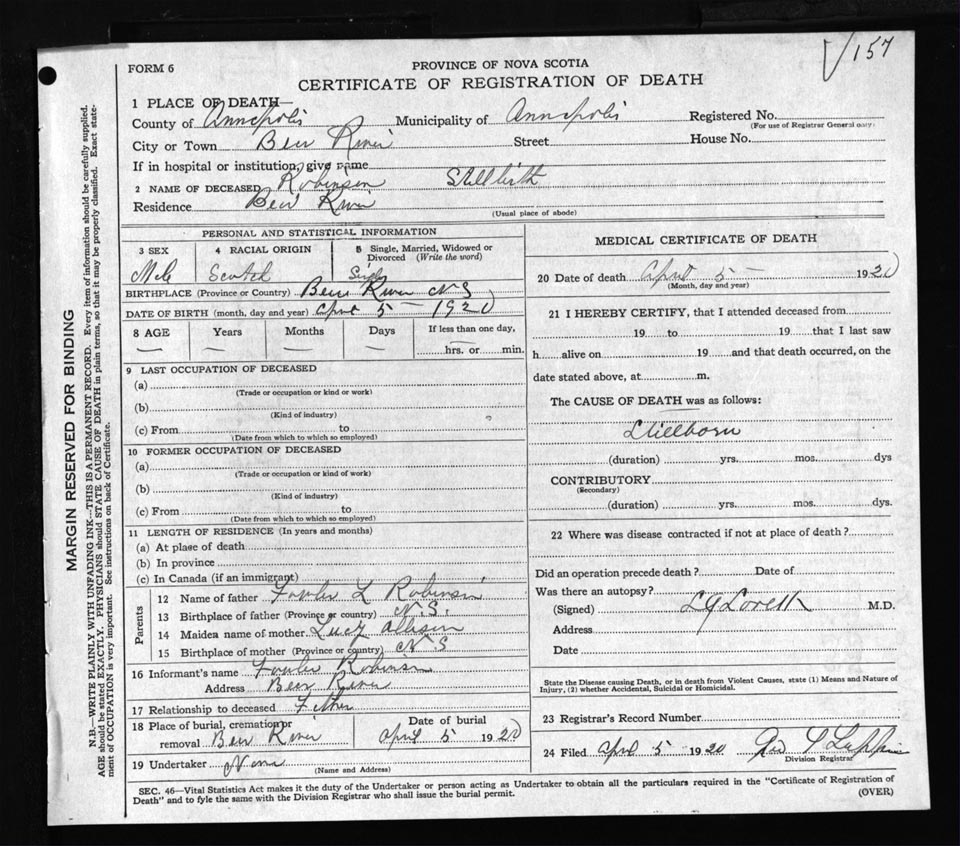 157
FORM 6
PROVINCE OF NOVA SCOTIA
CERTIFICATE OF REGISTRATION OF DEATH
1 PLACE OF DEATH—
County of Annapolis Municipality of Annapolis Registered No.
(For use of Registrar General only.)
City or Town Bear River Street House No.
If in hospital or institution, give name
2 NAME OF DECEASED Robinson Stillbirth
Residence Bear River
(Usual place of abode)
PERSONAL AND STATISTICAL INFORMATION
3 SEX 4 RACIAL ORIGIN 5 Single, Married, Widowed or Divorced (Write the word)
Male Scotch Single
BIRTHPLACE (Province or Country) Bear River N S
DATE OF BIRTH (month, day and year) April 5 — 1920
8 AGE Years Months Days If less than one day,
— — — — hrs. or min.
9 LAST OCCUPATION OF DECEASED
(a)
(Trade or occupation or kind or work)
(b)
(Kind of industry)
(c) From to
(Date from which to which so employed)
10 FORMER OCCUPATION OF DECEASED
(a)
(Trade or occupation or kind of work)
(b)
(Kind of industry)
(c) From to
(Date from which to which so employed)
11 LENGTH OF RESIDENCE (In years and months)
(a) At place of death
(b) In province
(c) In Canada (if an immigrant)
Parents
12 Name of father Fowler L Robinson
13 Birthplace of father (Province or country) N.S.
14 Maiden name of mother Lucy Allison
15 Birthplace of mother (Province or country) N S
16 Informant's name Fowler Robinson
Address Bear River
17 Relationship to deceased Father
18 Place of burial, cremation or removal Bear River
Date of burial April 5 1920
19 Undertaker None
(Name and Address)
MEDICAL CERTIFICATE OF DEATH
20 Date of death April 5 — 1920
(Month, day and year)
21 I HEREBY CERTIFY, that I attended deceased from
19 to 19 that I last saw
h alive on 19 and that death occurred, on the
date stated above, at m.
The CAUSE OF DEATH was as follows:
Stillborn
(duration) yrs. mos. dys
CONTRIBUTORY
(Secondary)
(duration) yrs. mos. dys.
22 Where was disease contracted if not at place of death?
Did an operation precede death? Date of
Was there an autopsy?
(Signed) M.D.
Address
Date
State the Disease causing Death, or in death from Violent Causes, state (1) Means and Nature of
Injury, (2) whether Accidental, Suicidal or Homicidal.
23 Registrar's Record Number
24 Filed April 5 1920
Division Registrar
SEC. 46—Vital Statistics Act makes it the duty of the Undertaker or person acting as Undertaker to obtain all the particulars required in the "Certificate of Registration of
Death" and to fyle the same with the Division Registrar who shall issue the burial permit.
(OVER)
MARGIN RESERVED FOR BINDING
N.B.—WRITE PLAINLY WITH UNFADING INK—THIS IS A PERMANENT RECORD. Every item of information should be carefully supplied.
AGE should be stated EXACTLY. PHYSICIANS should STATE CAUSE OF DEATH in plain terms, so that it may be properly classified. Exact state-
ment of OCCUPATION is very important. See instructions on back of Certificate.